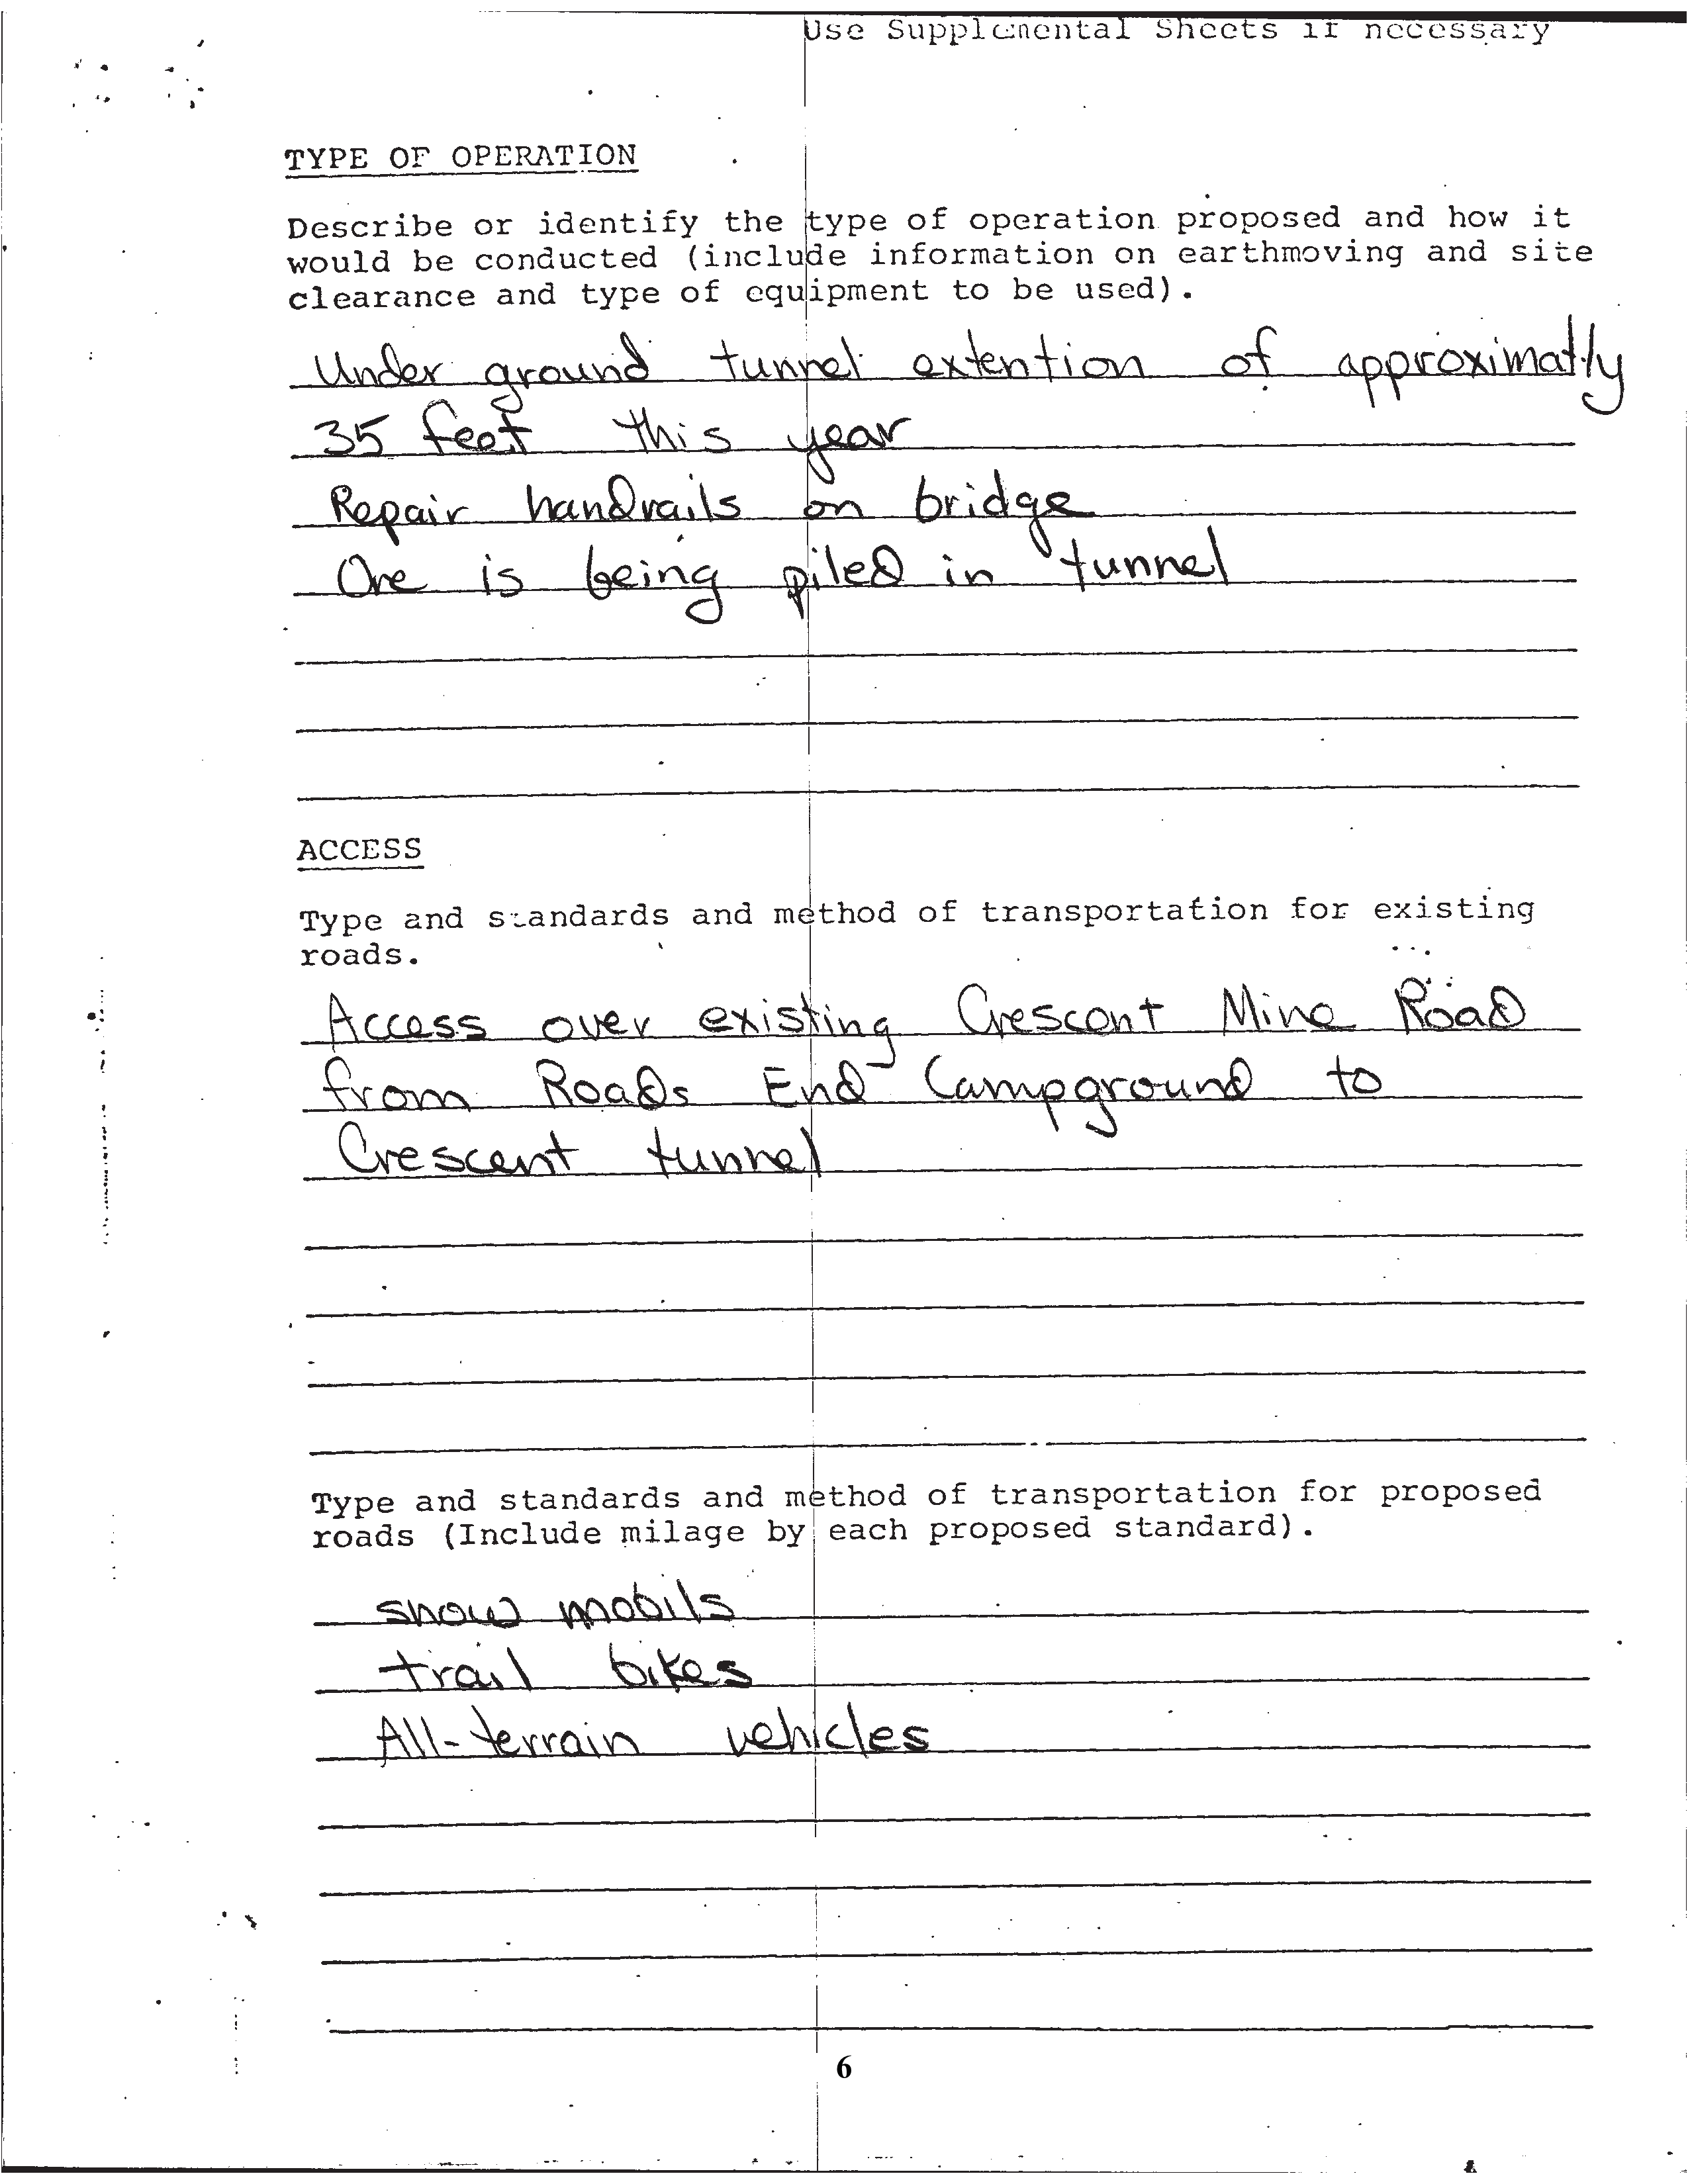 Use Supplemental Sheets if necessary
TYPE OF OPERATION
Describe or identify the type of operation proposed and how it
would be conducted (include information on earthmoving and site
clearance and type of equipment to be used).
Under ground tunnel extention of approximatly
35 feet this year
Repair handrails on bridge
Ore is being piled in tunnel
ACCESS
Type and standards and method of transportation for existing
roads.
Access over existing Crescent Mine Road
from Roads End Campground to
Crescent tunnel
Type and standards and method of transportation for proposed
roads (Include milage by each proposed standard).
snow mobils
trail bikes
All-terrain vehicles
6